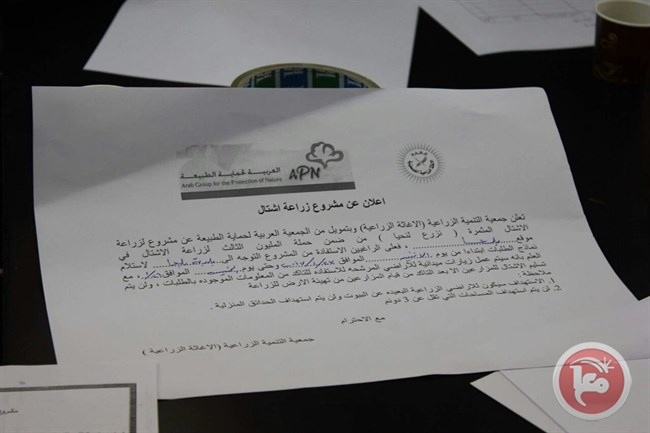 العربية لحماية الطبيعة
Arab Group for the Protection of Nature
APN
اعلان عن مشروع زراعة اشتال
تعلن جمعية التنمية الزراعية (الاغاثة الزراعية) وبتمويل من الجمعية العربية لحماية الطبيعة عن مشروع لزراعة
الاشتال المثمرة ( نزرع لنحيا ) من ضمن حملة المليون الثالث لزراعة الاشتال في
موقع فعلى الراغبين الاستفادة من المشروع التوجه الى لاستلام
نماذج الطلبات ابتداءا من يوم الموافق وحتى يوم الموافق مع
العلم بانه سيتم عمل زيارات ميدانية للاراضي المرشحه للاستفادة للتاكد من المعلومات الموجوده بالطلبات ، ولن يتم
تسليم الاشتال للمزارعين الا بعد التاكد من قيام المزارعين من تهيئة الارض للزراعة
ملاحظة :
1. الاستهداف سيكون للاراضي الزراعية البعيده عن البيوت ولن يتم استهداف الحدائق المنزلية .
2. لن يتم استهداف المساحات التي تقل عن 3 دونم
مع الاحترام
جمعية التنمية الزراعية (الاغاثة الزراعية )
معا